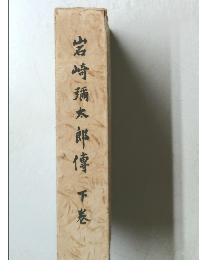 岩崎彌太郎傳 下巻